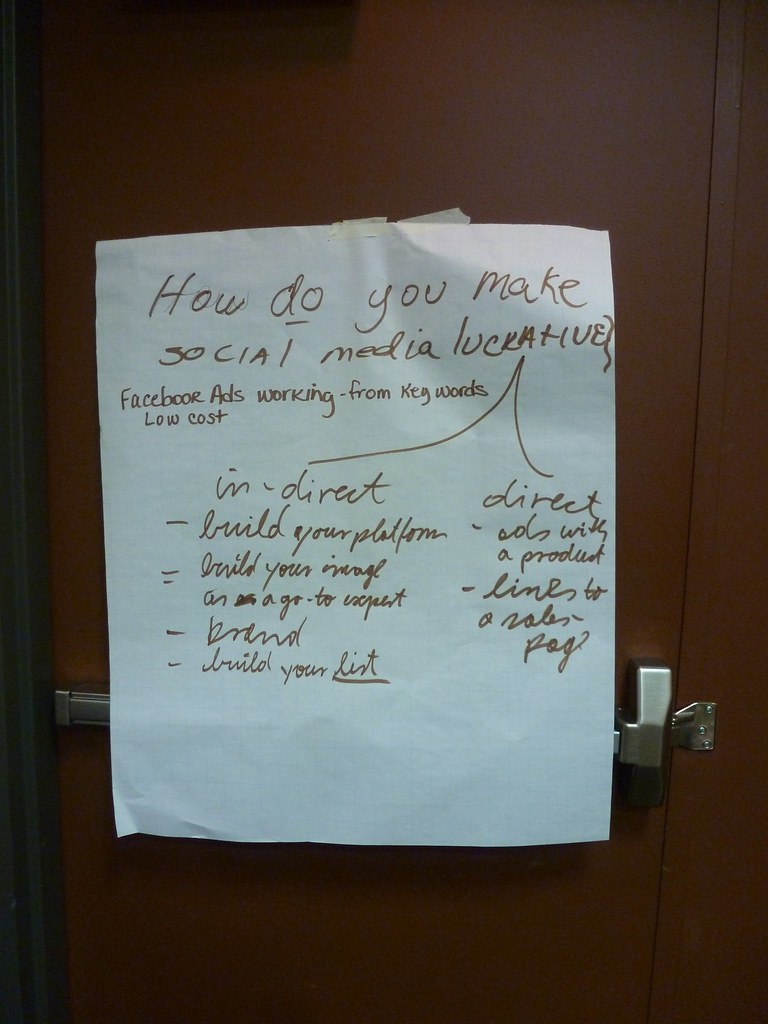 How do you make
SOCIAL media LUCRATIVE}
Facebook Ads working - from Key words
Low cost
in-direct
- build your platform
= build your image
as a go-to expert
- brand
- build your list
direct
- ads with
a product
- lines to
a sales-
page